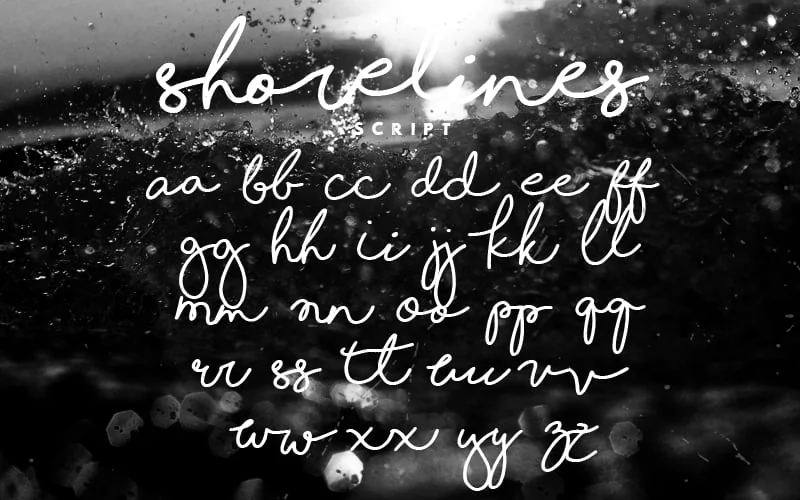 shorelines
SCRIPT
aa bb cc dd ee ff
gg hh ii jj kk ll
mm nn oo pp qq
rr ss tt uu vv
ww xx yy zz